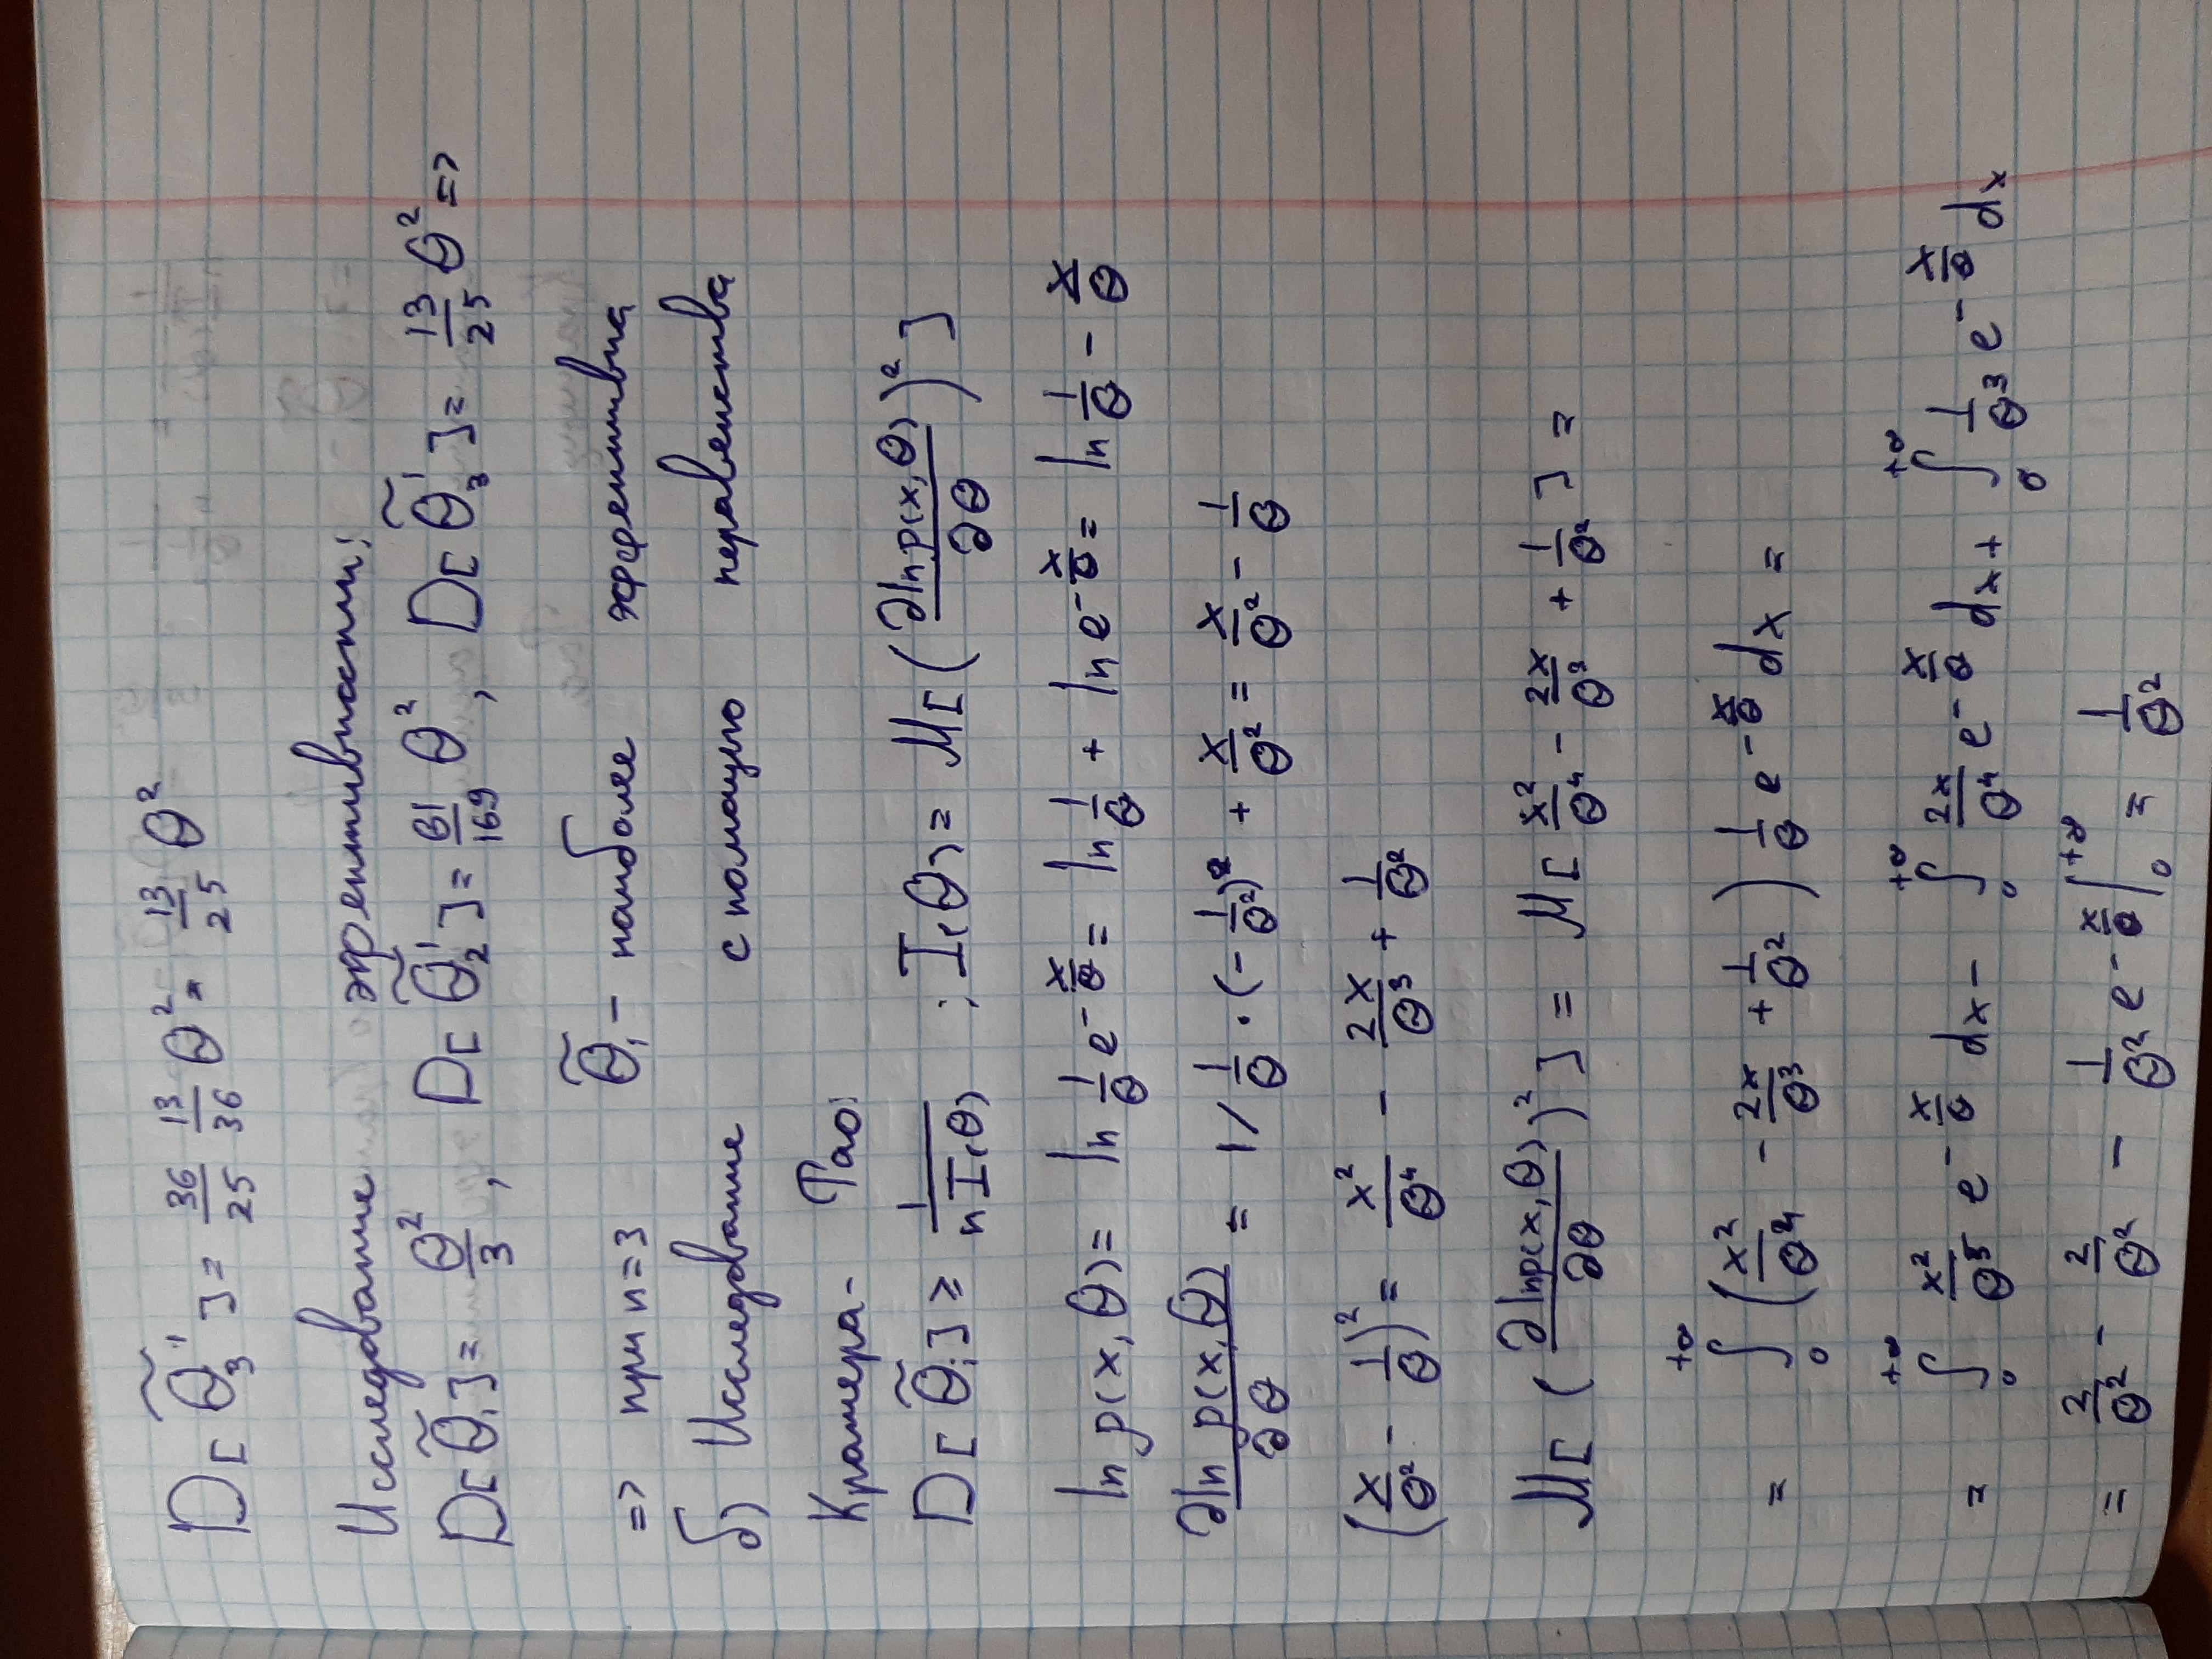 D[θ̃₃'] = 36/25 13/36 θ² = 13/25 θ²
Исследование эффективности:
D[θ̃₁] = θ²/3, D[θ̃₂'] = 61/169 θ², D[θ̃₃'] = 13/25 θ² =>
=> при n=3 θ̃₁ - наиболее эффективна
б) Исследование с помощью неравенства
Крамера- Рао:
D[θ̃ᵢ] ≥ 1/(nI(θ)) ; I(θ) = M[(∂ln p(x,θ)/∂θ)²]
ln p(x,θ) = ln 1/θ e^(-x/θ) = ln 1/θ + ln e^(-x/θ) = ln 1/θ - x/θ
∂ln p(x,θ)/∂θ = 1/ 1/θ · (-1/θ²) + x/θ² = x/θ² - 1/θ
(x/θ² - 1/θ)² = x²/θ⁴ - 2x/θ³ + 1/θ²
M[(∂ln p(x,θ)/∂θ)²] = M[x²/θ⁴ - 2x/θ³ + 1/θ²] =
= ∫₀^(+∞) (x²/θ⁴ - 2x/θ³ + 1/θ²) 1/θ e^(-x/θ) dx =
= ∫₀^(+∞) x²/θ⁵ e^(-x/θ) dx - ∫₀^(+∞) 2x/θ⁴ e^(-x/θ) dx + ∫₀^(+∞) 1/θ³ e^(-x/θ) dx
= 2/θ² - 2/θ² - 1/θ² e^(-x/θ) |₀^(+∞) = 1/θ²